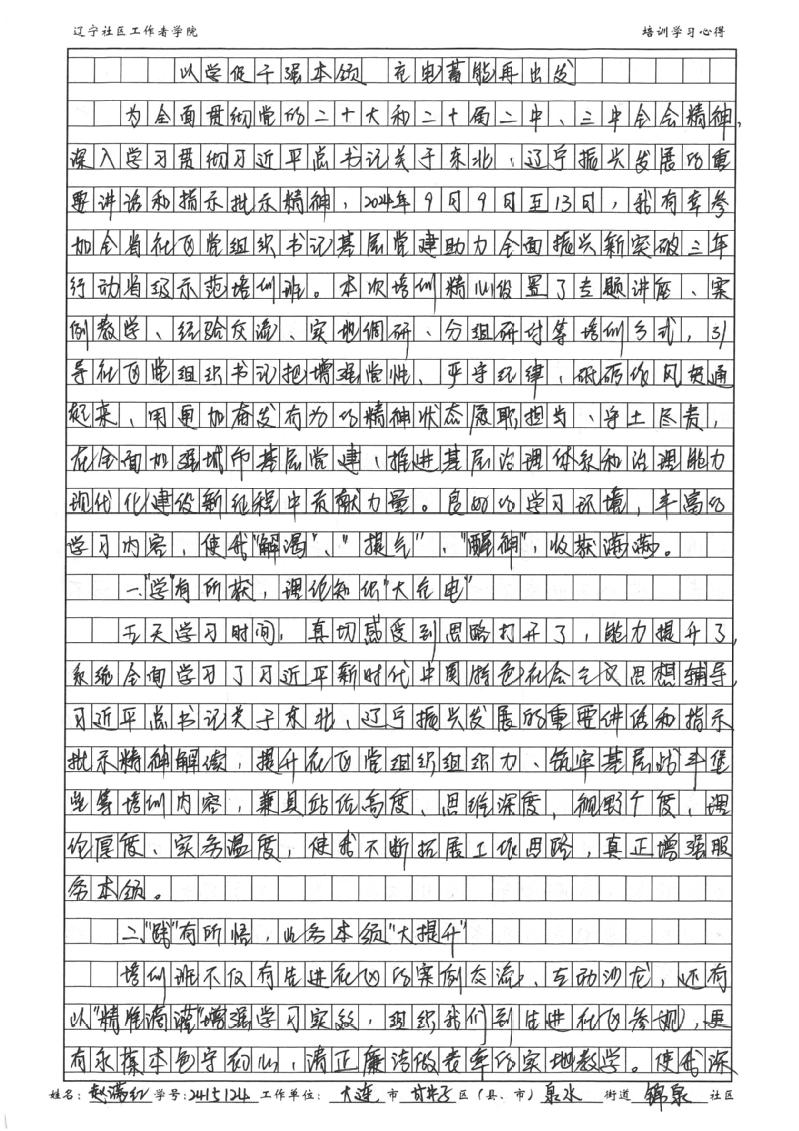 辽宁社区工作者学院 培训学习心得
以学促干强本领 充电蓄能再出发
为全面贯彻党的二十大和二十届二中、三中全会精神,
深入学习贯彻习近平总书记关于东北、辽宁振兴发展的重
要讲话和指示批示精神,2024年9月9日至13日,我有幸参
加全省社区党组织书记基层党建助力全面振兴新突破三年
行动省级示范培训班。本次培训精心设置了专题讲座、案
例教学、经验交流、实地调研、分组研讨等培训方式,引
导社区党组织书记把增强党性、严守纪律、砥砺作风贯通
起来,用更加奋发有为的精神状态履职担当、守土尽责,
在全面加强城市基层党建、推进基层治理体系和治理能力
现代化建设新征程中贡献力量。良好的学习环境,丰富的
学习内容,使我"解渴"、"提气"、"醒神",收获满满。
一、"学"有所获,理论知识"大充电"
五天学习时间,真切感受到思路打开了,能力提升了,
系统全面学习了习近平新时代中国特色社会主义思想辅导,
习近平总书记关于东北、辽宁振兴发展的重要讲话和指示
批示精神解读,提升社区党组织组织力、筑牢基层战斗堡
垒等培训内容,兼具站位高度、思维深度、视野广度、理
论厚度、实务温度,使我不断拓展工作思路,真正增强服
务本领。
二、有所悟,业务本领"大提升"
培训班不仅有先进社区的案例交流、互动沙龙,还有
以"精准滴灌"增强学习实效,组织我们到先进社区参观,更
有永葆本色守初心,清正廉洁做表率的实地教学。使我深
姓名:赵满红 学号:2415124 工作单位:大连市 甘井子区(县、市)泉水 街道 锦泉 社区